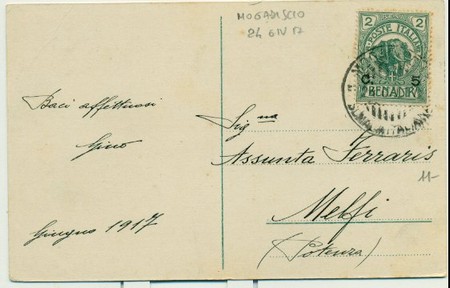 MOGADISCIO
24 GIU 17
2 2
POSTE ITALIANE
C. 5
BENADIR
SOMALIA ITALIANA
Baci affettuosi
Gino
Giugno 1917
Sig.na
Assunta Ferraris
Melfi
(Potenza)
11-